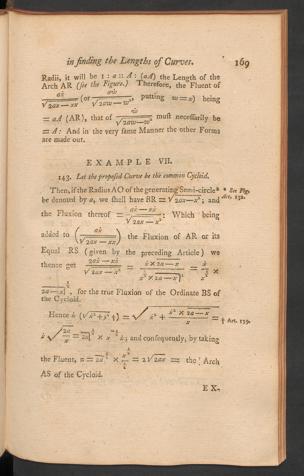 in finding the Lengths of Curves. 169
Radii, it will be 1 : a :: A : (aA) the Length of the
Arch AR (see the Figure.) Therefore, the Fluent of
aẋ/√2ax—xx (or aẇ/√2aw—w², putting w=x) being
= aA (AR), that of ẇ/√2aw—w² must necessarily be
= A: And in the very same Manner the other Forms
are made out.
EXAMPLE VII.
143. Let the proposed Curve be the common Cycloid.
Then, if the Radius AO of the generating Semi-circle* * See Fig.
be denoted by a, we shall have BR = √2ax—x²; and Art. 132.
the Fluxion thereof = aẋ—xẋ/√2ax—x²: Which being
added to (aẋ/√2ax—xx) the Fluxion of AR or its
Equal RS (given by the preceding Article) we
thence get 2aẋ—xẋ/√2ax—x² = ẋ×2a—x/x^½×2a—x|^½ = ẋ/x^½ ×
2a—x|^½, for the true Fluxion of the Ordinate BS of
the Cycloid.
Hence ż (√ẋ²+ẏ² †) = √ẋ² + ẋ²×2a—x/x = † Art. 135.
ẋ√2a/x = 2a|^½ × x^-½ẋ; and consequently, by taking
the Fluent, z = 2a|^½ × x^½/½ = 2√2ax = the Arch
AS of the Cycloid.
EX-